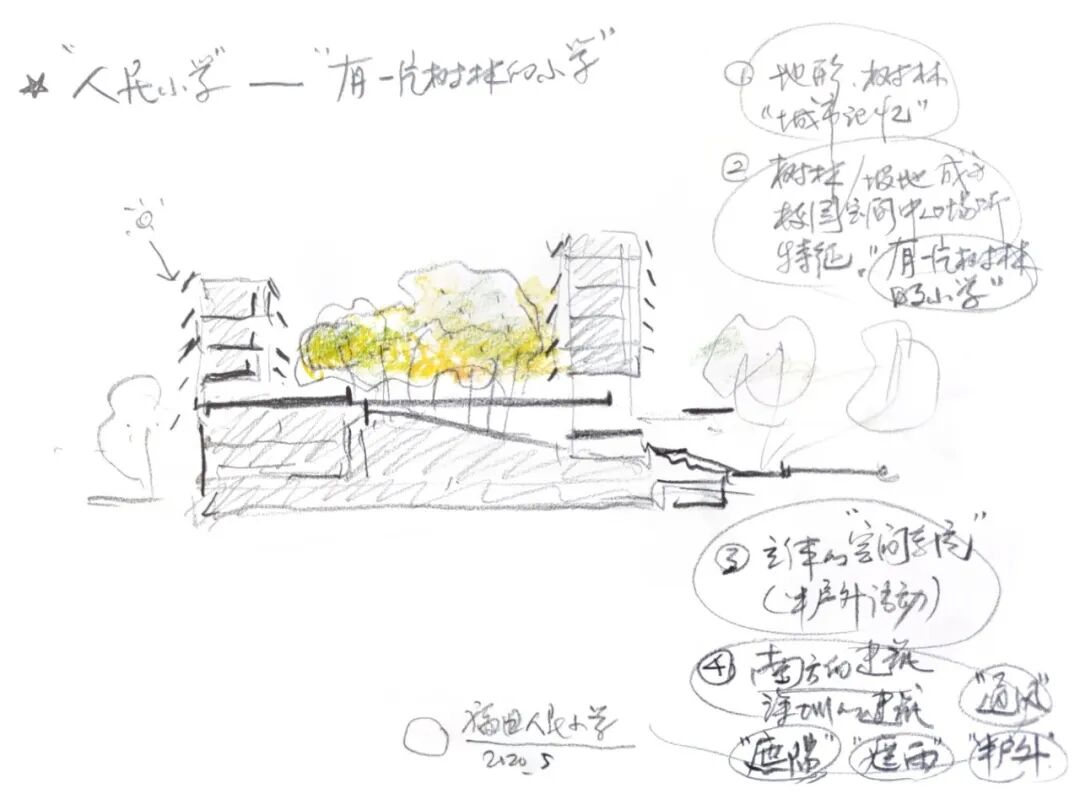 "人民小学"——"有一片树林的小学"
① 地形、树林
"城市记忆"
② 树林/坡地成为
校园空间中心场所
特征。"有一片树林
的小学"
③ 立体的"空间
(半户外活动)
④ 南方的建筑
深圳的建筑
"通风"
"遮阳" "遮雨" "半户外"
福田人民小学
2020.5